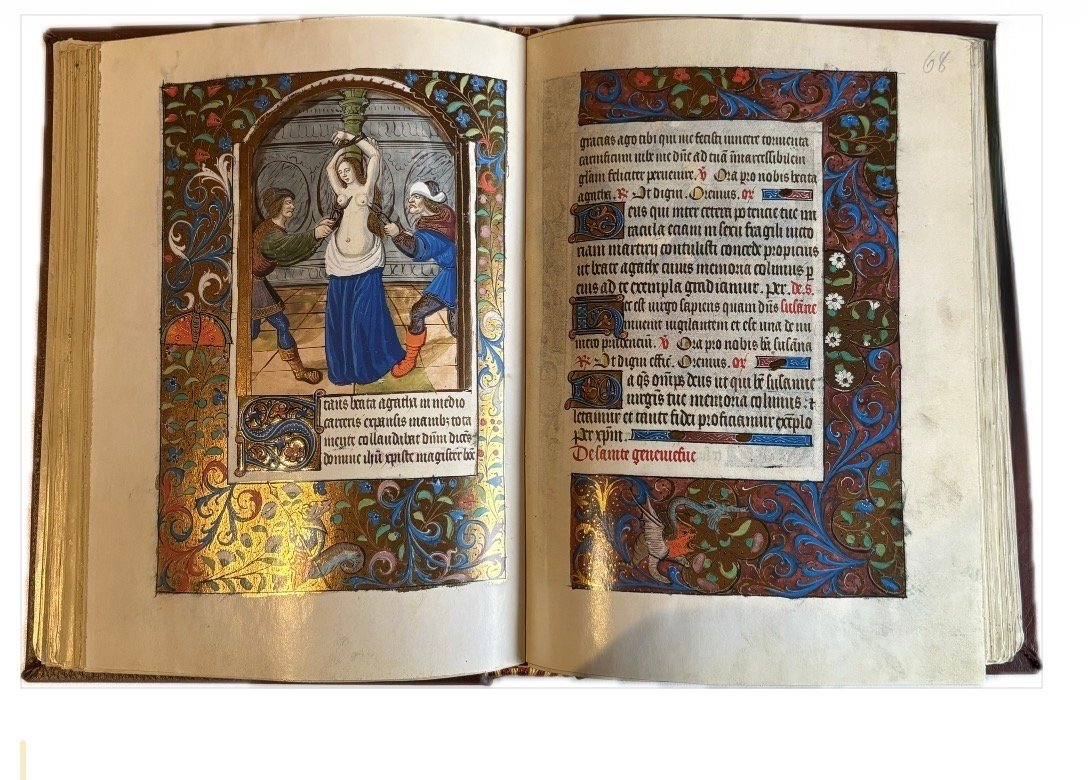 Stans beata agatha in medio
carceris expansis manib; tota
mente collaudabat dnm dices
domine ihu xpiste magister bōe
68
gracias ago tibi qui me fecisti vincere tormenta
carnificum iube me dne ad tuā īmarcessibilem
glam feliciter pervenire. v Ora pro nobis beata
agatha. R Ut digni. Oremus. or
Deus qui inter cetera potencie tue mi
racula eciam in sexu fragili victo
riam martirii contulisti concede propicius
ut beate agathe cuius memoria colimus p
eius ad te exempla gradiamur. per. de. s.
Hec est virgo sapiens quam dns susāne
invenit vigilantem et est una de nu
mero prudenciū. v Ora pro nobis bt susāna
R Ut digni effic. Oremus. or
Da qs omps deus ut qui bte susanne
virgīs tue memoria colimus. et
letamur et tante fidei proficiamur exēplo
Per xpm.
De sancte genovefue